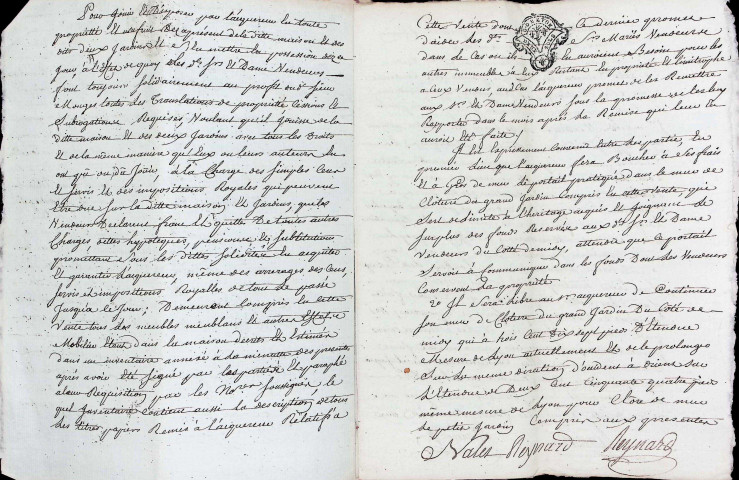 Pour Jouir et disposer par l'acquereur en toute
propriété et usufruit des apresent de la ditte maison et des
dits deux Jardins et s'en mettre en possession dez ce
jour, à l'effet de quoy les dts Srs et Dame Vendeurs
font toujour solidairement au profit du dt Sieur
Monges toutes les Translations de propriété Cessions et
Subrogations Requises Voulant qu'il Jouisse de la
ditte maison et des deux Jardins avec tous les droits
et de la même manière qu'Eux ou leurs auteurs en
ont pû ou dû Jouir, à la Charge des Simples Cens
et servis et des impositions Royales qui peuvent
Etre due sur la ditte maison, et Jardins, que les
Vendeurs declarent franc et quitte de toutes autres
Charges, dettes hypoteques, pensions et substitutions
promettant sous les dittes solidité en acquitter
et garantir l'acquereur, même des arrerages des Cens,
servis et impositions Royalles de tout le passé
Jusqu'a ce Jour; Demeurent Compris en cette
Vente tous les meubles meublans et autre Effets
Mobilier étant dans la maison
dans un inventaire annexé à la minutte des presentes
après avoir été signé par les parties et paraphé
a leur Requisition par les Nores soussignés le
quel Inventaire Contient aussi la description de tous
les titres papiers Remis à l'acquereur Relatifs a
Cette Vente dont ce dernier promet
d'aider les dts Srs Mariés Vendeurs
dans le Cas ou ils en auroient Besoin pour les
autres immeubles à Eux Restant en propriété et
a Eux Vendus, audt Cas l'acquereur promet de les Remettre
aux dt Sr et Dame Vendeurs sous la promesse de les luy
Rapporter dans le mois après la Remise qui leur En
auroit Eté faitte;
Il Est Expressement Convenu entre les parties, En
premier lieu que l'acquereur fera Boucher a ses frais
Et a de mur le portail pratiqué dans le mur de
Cloture du grand Jardin Compris En cette Vente, qui
Sert de limite a l'heritage acquis et Joignant le
Surplus des fonds Reservés aux dts Srs et Dame
Vendeurs du Cotté de midy, attendu que ce portail
Servoit à Communiquer dans les fonds Dont les Vendeurs
Conservent la propriété.
2o Il Sera libre au Sr acquereur de Continuer
Son mur de Cloture du grand Jardin Du Coté de
midy qui à trois Cent Dix sept pieds D'étendue
Mesure de Lyon actuellement Et de le prolonger
Sur la même diration D'ouident à orient Sur
L'étendue de Deux Cent Cinquante quatre pieds
même mesure de Lyon pour Clore de mur
le petit Jardin Compris aux presentes
Nalet Reynard Reynard